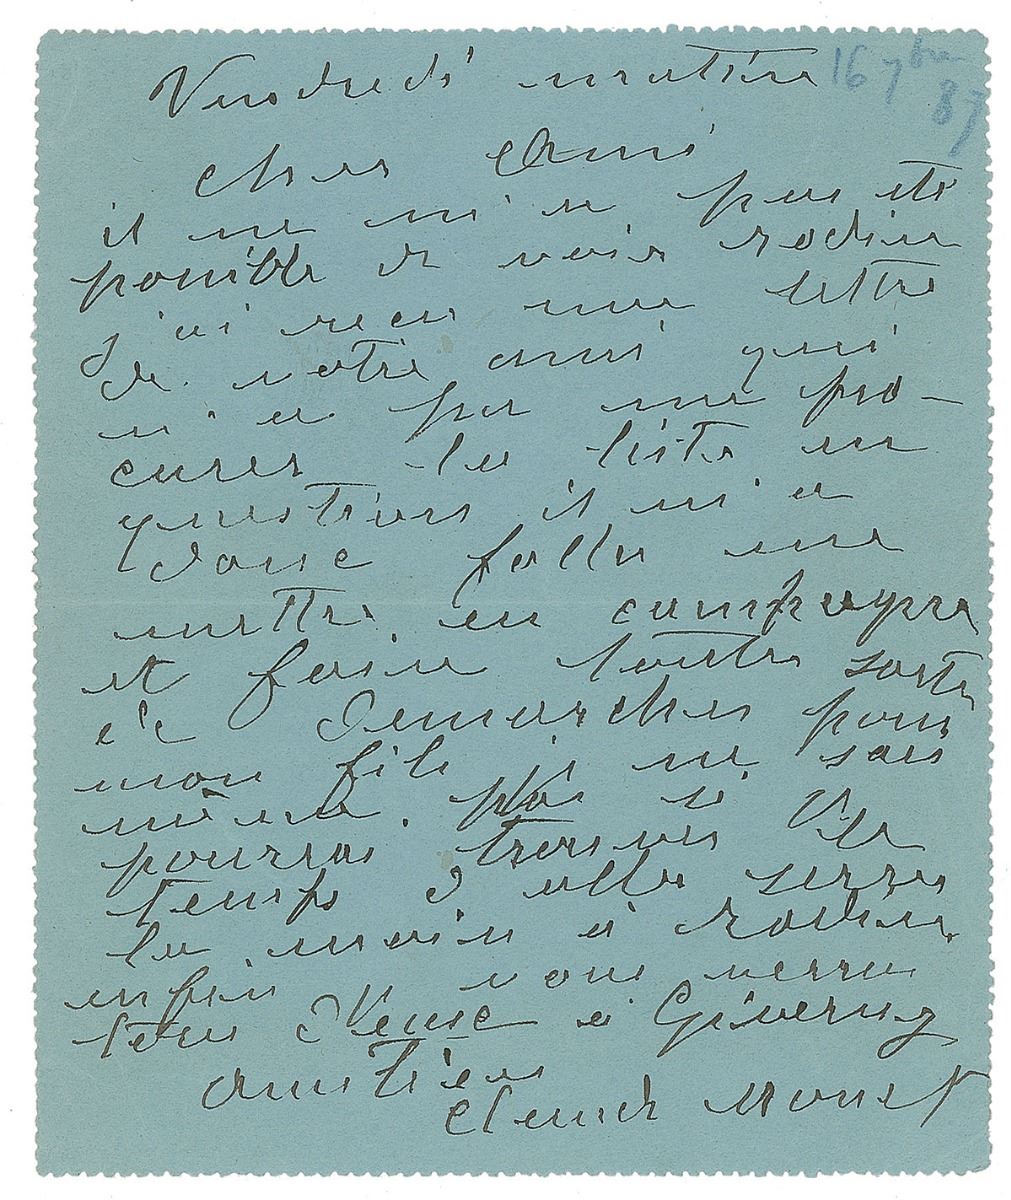 Vendredi matin
16 7bre
87
cher ami
il ne m'a pas été
possible de voir rodin
j'ai recu une lettre
de votre ami qui
n'a pu me pro-
curer la liste en
question il m'a
donc fallu me
mettre en campagne
et faire toutes sortes
de demarches pour
mon fils je ne sais
même pas si je
pourrai trouver le
temps d'aller serrer
la main à rodin
enfin nous verrons
tous deux à Giverny
amitiés
Claude Monet